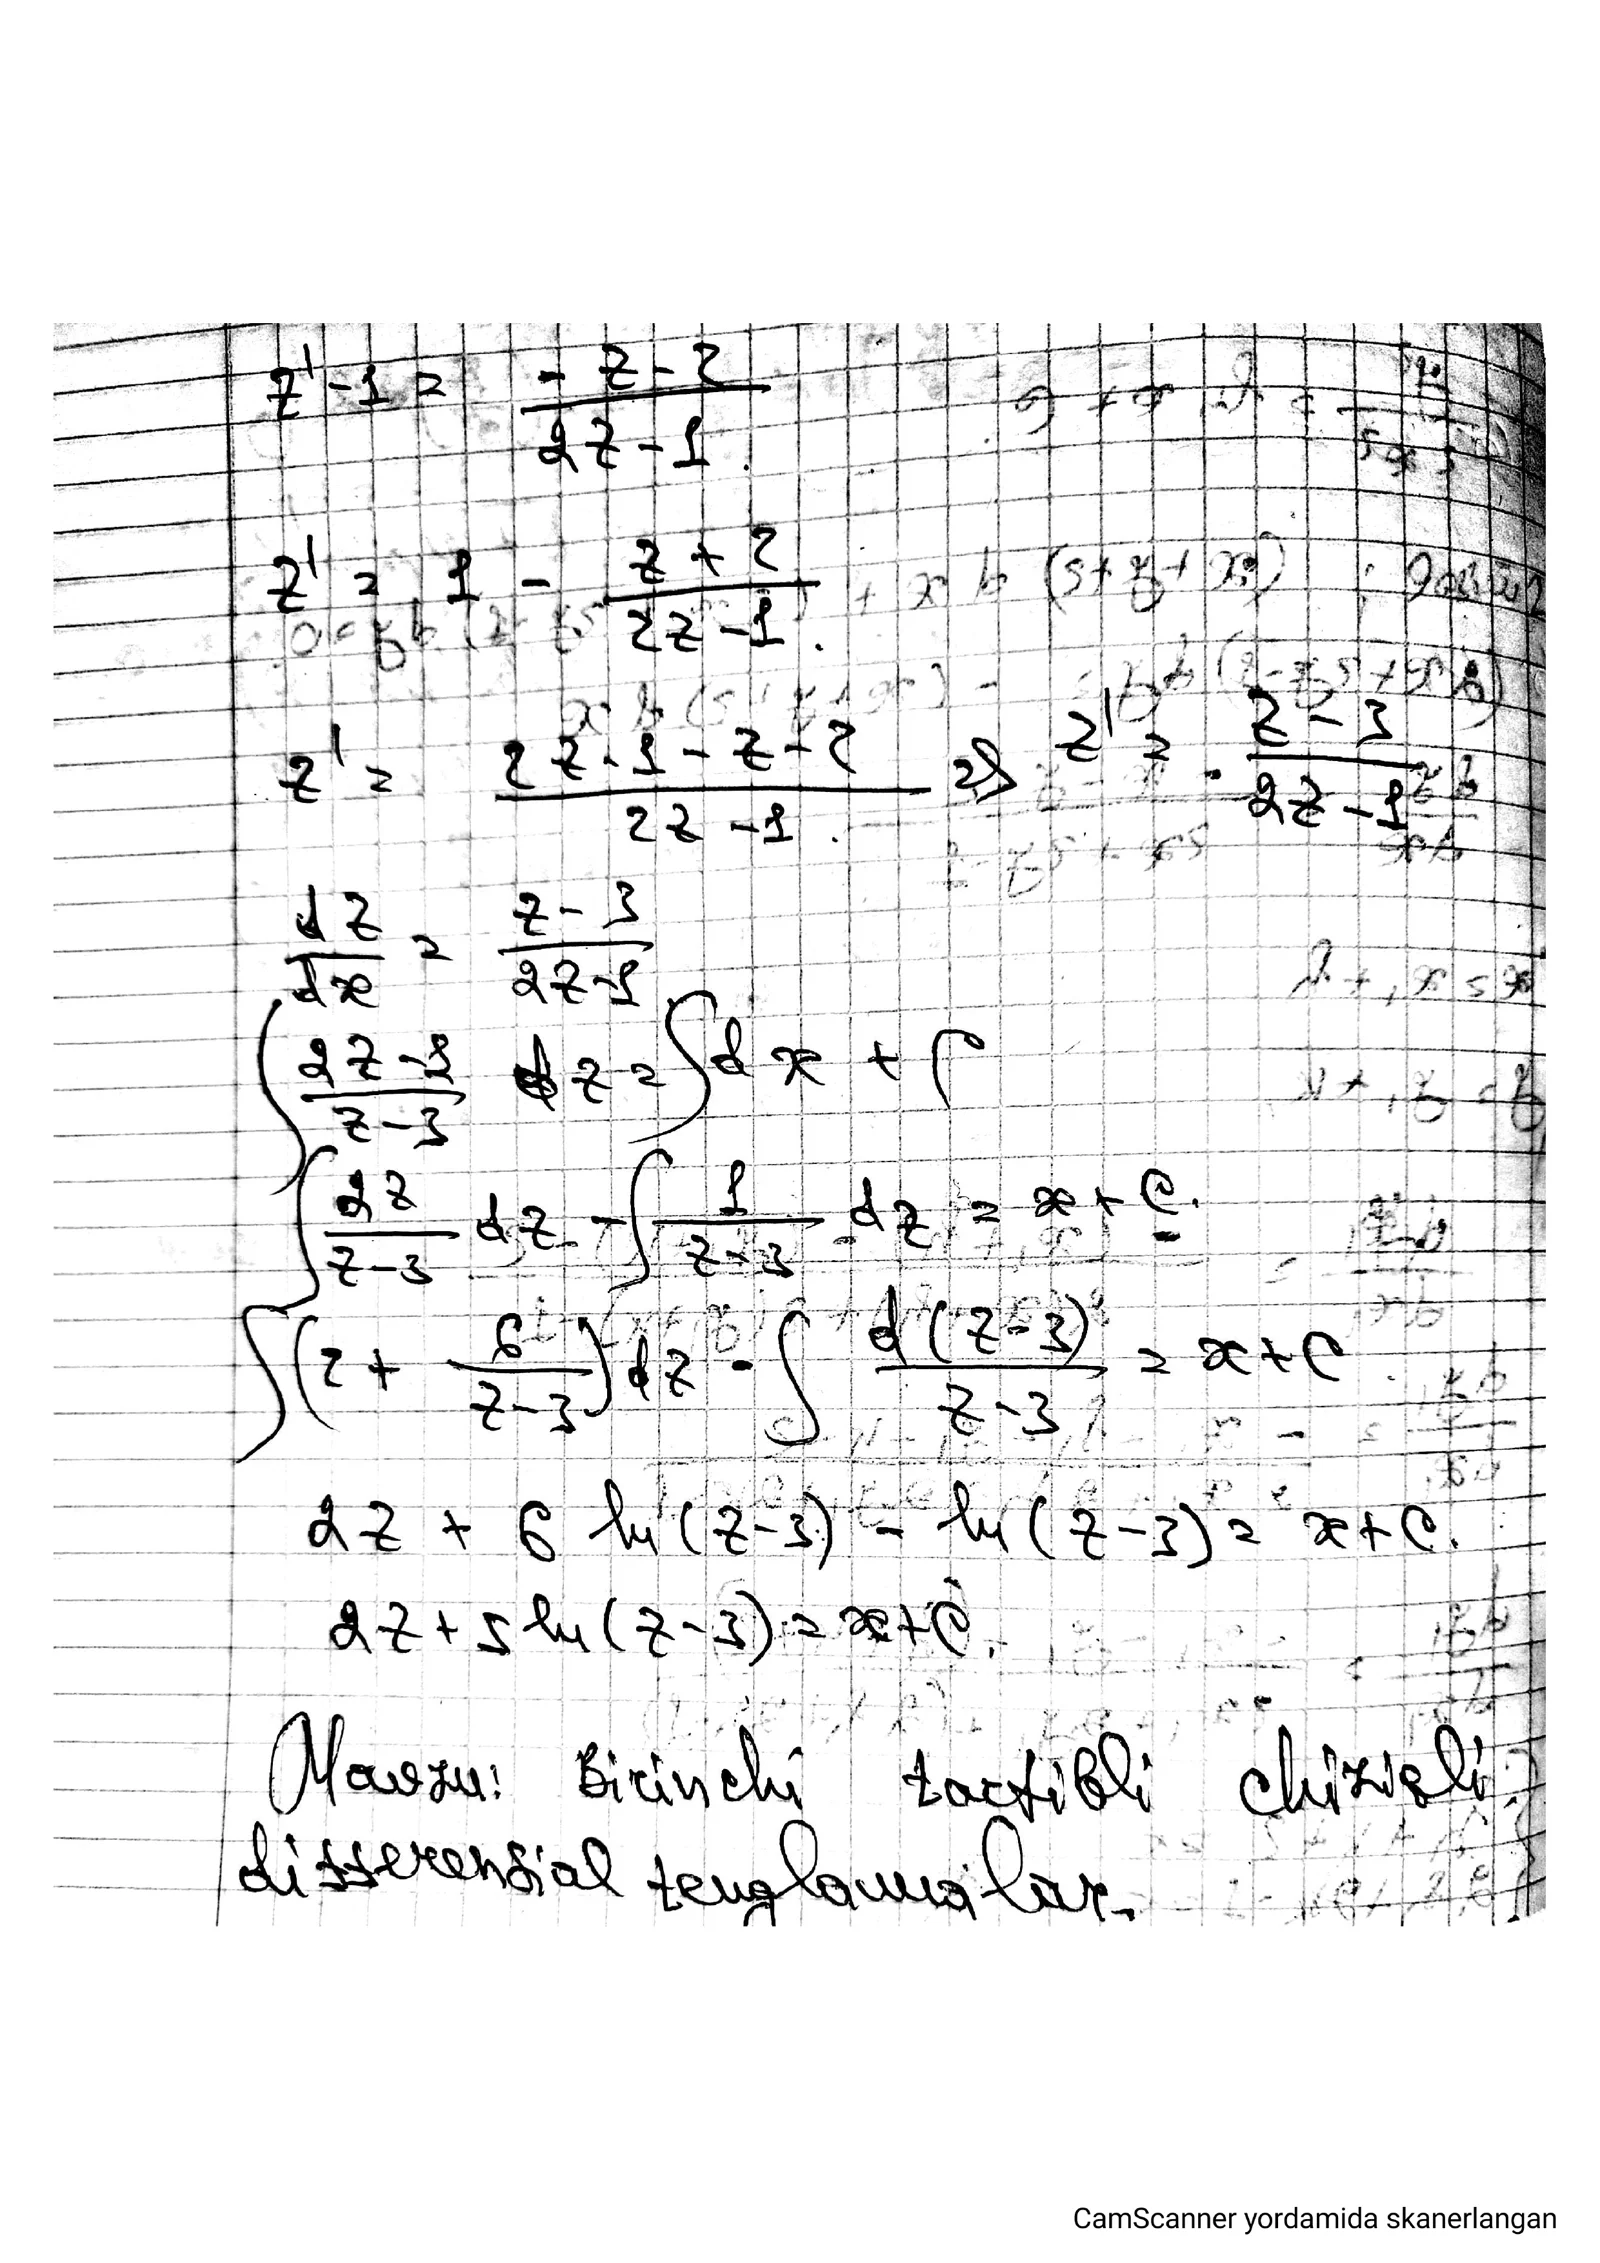 z' - 1 = (-z - 2)/(2z - 1).
z' = 1 - (z + 2)/(2z - 1).
z' = (2z - 1 - z - 2)/(2z - 1). => z' = (z - 3)/(2z - 1)
dz/dx = (z - 3)/(2z - 1)
∫ (2z - 1)/(z - 3) dz = ∫ dx + C
∫ 2z/(z - 3) dz - ∫ 1/(z - 3) dz = x + C.
∫ (2 + 6/(z - 3)) dz - ∫ d(z - 3)/(z - 3) = x + C.
2z + 6 ln(z - 3) - ln(z - 3) = x + C.
2z + 5 ln(z - 3) = x + C.
Mavzu: Birinchi tartibli chiziqli
differensial tenglamalar.
CamScanner yordamida skanerlangan